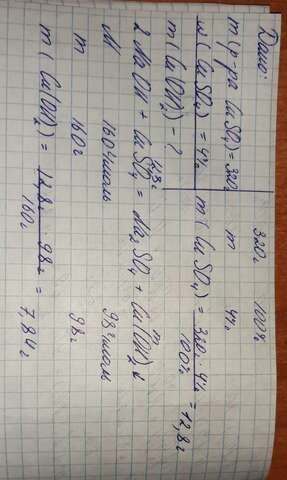 Дано:
m (р-ра CuSO₄) = 320г
ω (CuSO₄) = 4%
m (Cu(OH)₂) - ?
320г 100%
m 4%
m (CuSO₄) = 320 · 4% / 100% = 12,8г
12,8г m
2 NaOH + CuSO₄ = Na₂SO₄ + Cu(OH)₂↓
M 160г/моль 98г/моль
m 160г 98г
m (Cu(OH)₂) = 12,8г · 98г / 160г = 7,84г